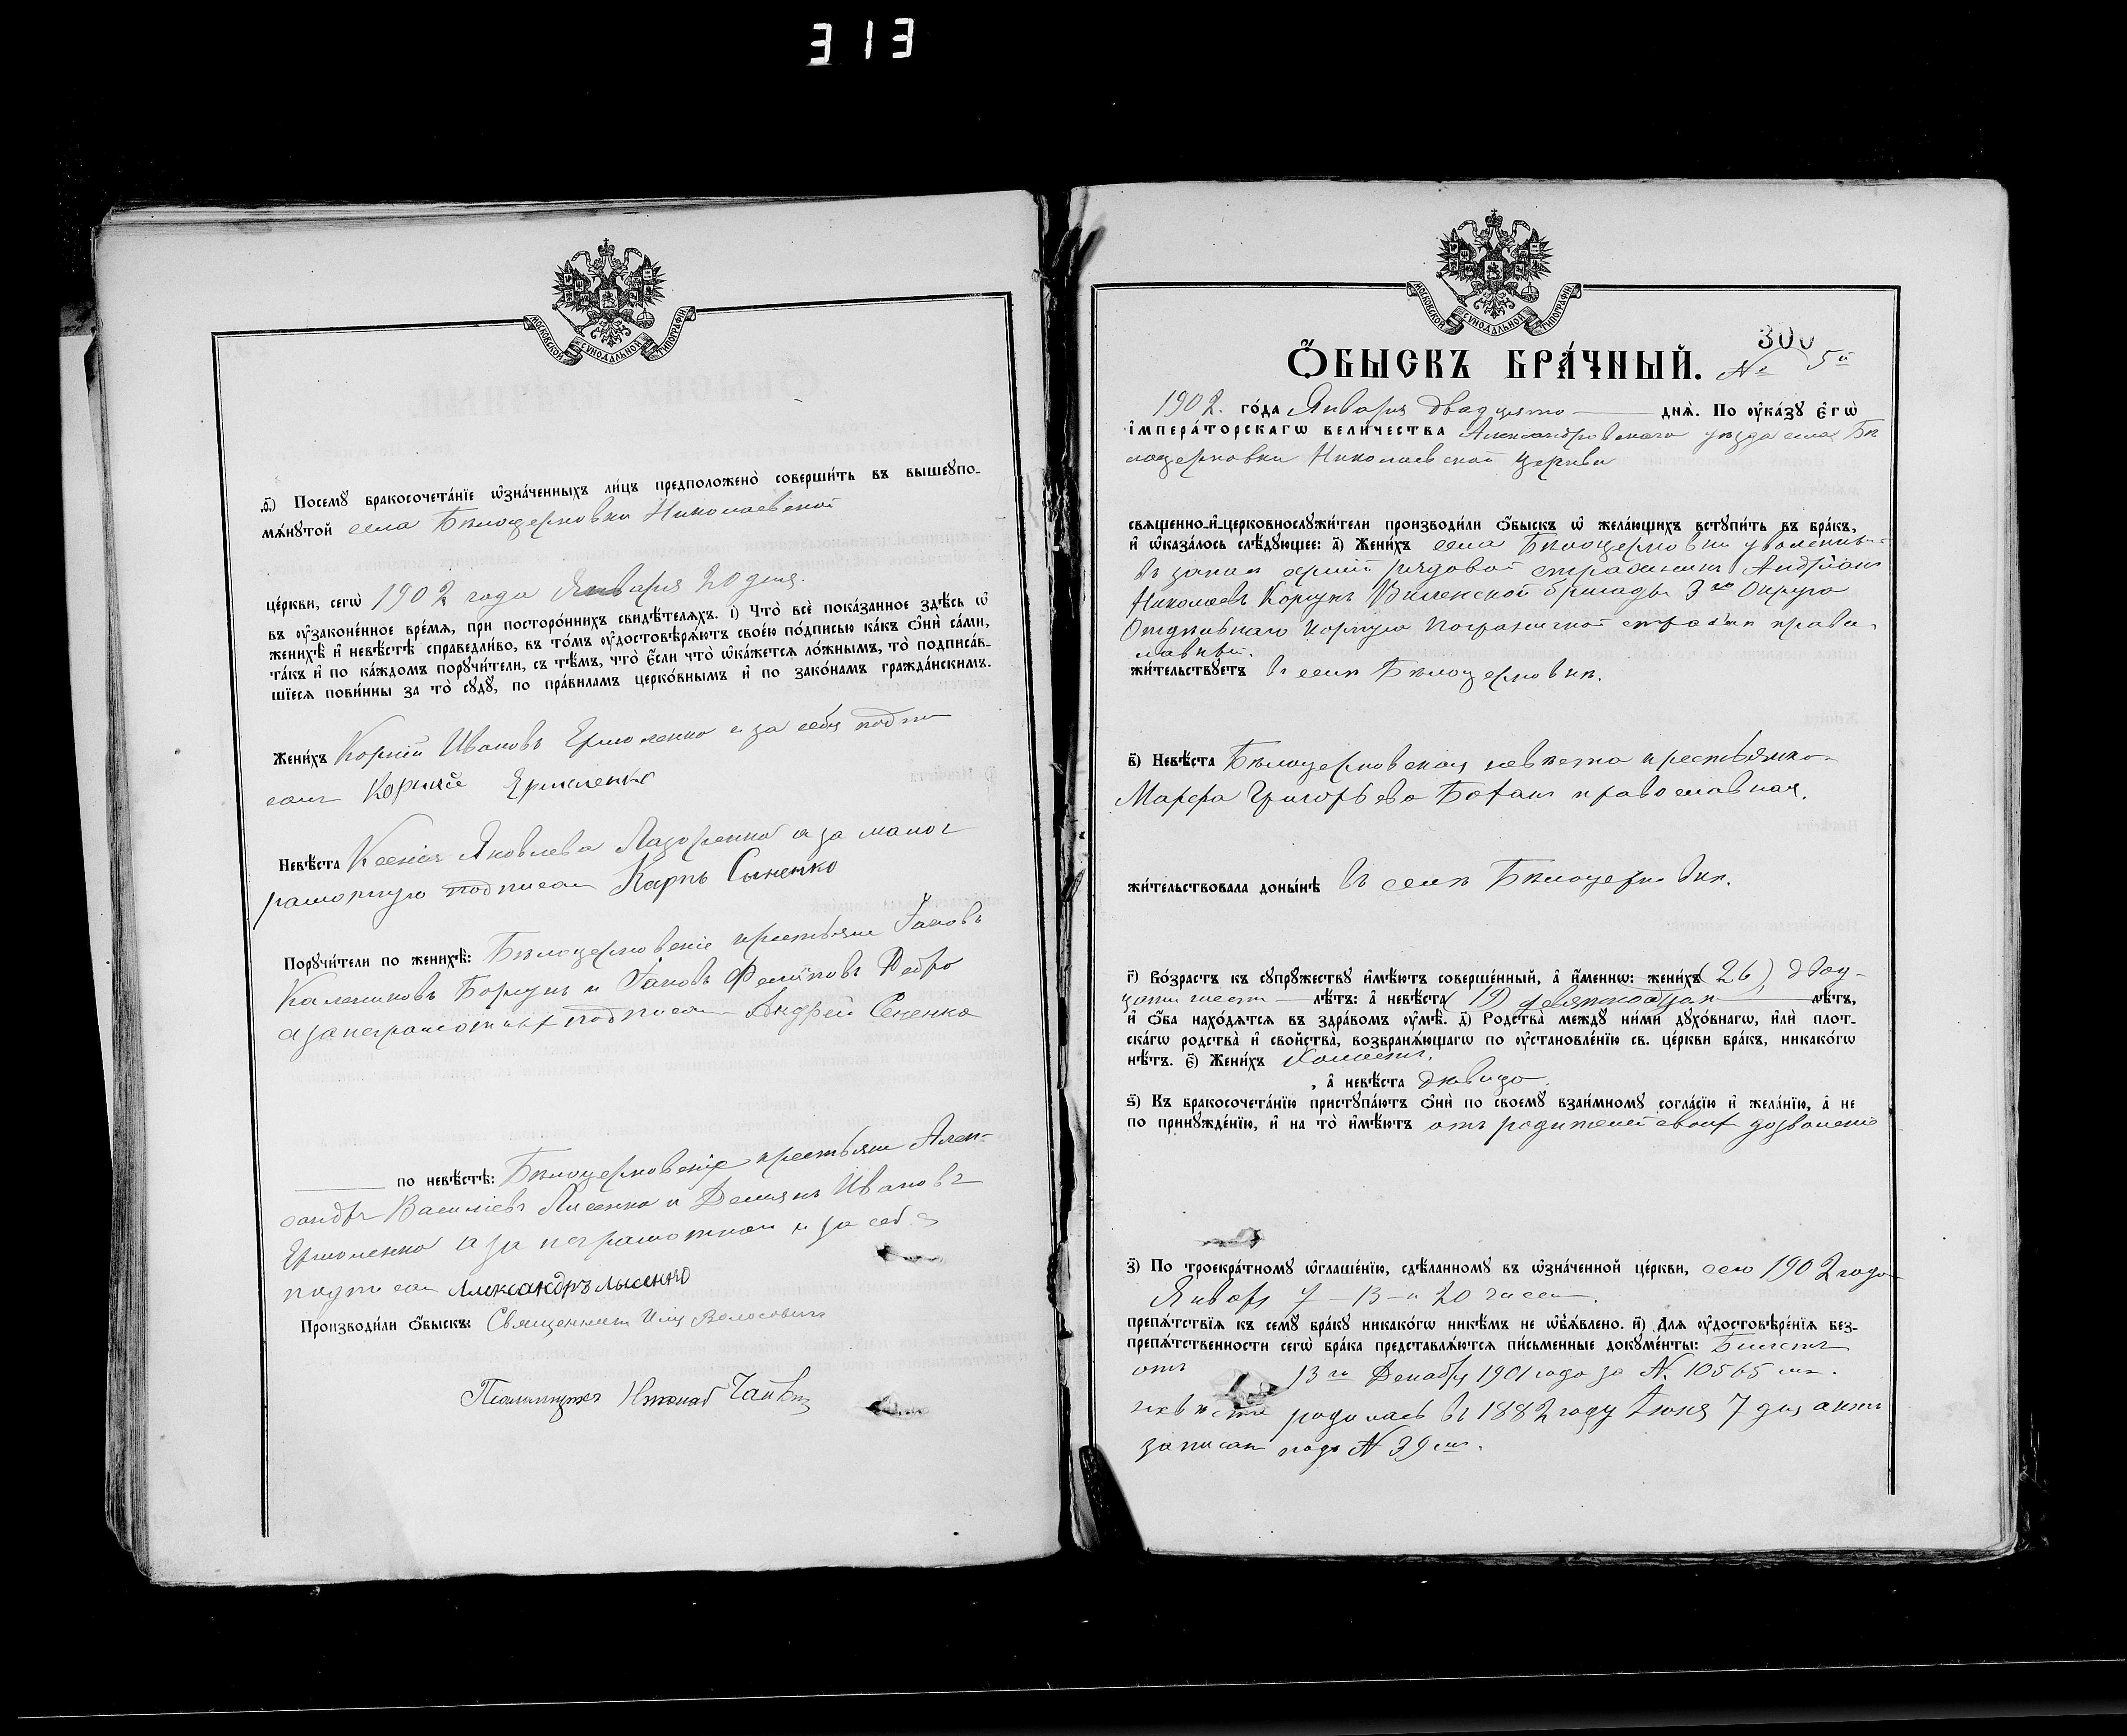 313
МОСКОВСКОЙ СѴНОДАЛЬНОЙ ТИПОГРАФІИ
ѳ҃) Посемꙋ бракосочета́нїе ѡ҆зна́ченныхъ ли́цъ предположено̀ соверши́ть въ вышеꙋпо-
мѧ́нꙋтой села Бѣлоцерковки Николаевской
це́ркви, сегѡ̀ 1902 года Января 20 дня.
въ ᲂу҆зако́ненное вре́мѧ, при посторо́ннихъ свидѣ́телѧхъ. і҃) Что̀ всѐ пока́занное здѣ́сь ѡ҆
женихѣ̀ и҆ невѣ́стѣ справедли́во, въ то́мъ ᲂу҆достовѣрѧ́ютъ свое́ю по́дписью ка́къ ѻ҆нѝ са́ми,
та́къ и҆ по ка́ждомъ порꙋчи́тели, съ тѣ́мъ, что̀ є҆́сли что̀ ѡ҆ка́жетсѧ ло́жнымъ, то̀ подписа́в-
шїесѧ пови́нны за то̀ сꙋдꙋ̀, по пра́виламъ церко́внымъ и҆ по зако́намъ гражда́нскимъ.
Жени́хъ Корній Ивановъ Ермоленко и за себя подпи
салъ Корній Ермоленко
Невѣ́ста Ксенія Яковлева Лазоренко а за малог
рамотную подписалъ Карпъ Сыненко
Порꙋчи́тели по женихѣ̀: Бѣлоцерковскіе крестьяне Іаковъ
Калениковъ Борщъ и Іаковъ
а за неграмотныхъ подписалъ Андрей Сененко
по невѣ́стѣ: Бѣлоцерковскіе крестьяне Алек-
сандръ Василіевъ Лисенко и Демянъ Ивановъ
Ермоленко а за неграмотнаго и за себя
подписалъ Александръ Лысенко
Производи́ли ѻ҆́быскъ: Священникъ Илія Волосовичъ
Псаломщикъ Николай
МОСКОВСКОЙ СѴНОДАЛЬНОЙ ТИПОГРАФІИ
300
Ѻ҆́БЫСКЪ БРА́ЧНЫЙ. № 5й
1902. го́да Января двадцято дна̀. По ᲂу҆ка́зꙋ є҆гѡ̀
і҆мпера́торскагѡ вели́чества Александровскаго уѣзда села Бѣ
лоцерковки Николаевской церкви
свѧщенно-и҆-церковнослꙋжи́тели производи́ли ѻ҆́быскъ ѡ҆ жела́ющихъ встꙋпи́ть въ бра́къ,
и҆ ѡ҆каза́лось слѣ́дꙋющее: а҃) Жени́хъ села Бѣлоцерковки уволенны-
въ запасъ арміи рядовой стражникъ Андріанъ
Николаевъ Коршунъ Виленской бригады 3го Округа
Отдѣльнаго Корпуса Пограничной стражи право-
славный.
жи́тельствꙋетъ въ селѣ Бѣлоцерковкѣ.
в҃) Невѣ́ста Бѣлоцерковская невѣста крестьянка
Марфа Григорьева православная.
жи́тельствовала доны́нѣ въ селѣ Бѣлоцерковкѣ.
г҃) Во́зрастъ къ сꙋпрꙋ́жествꙋ и҆мѣ́ютъ соверше́нный, а҆ и҆́менно: жени́хъ (26) двад-
цати шести лѣ́тъ: а҆ невѣ́ста (19) девятнадцати лѣ́тъ,
и҆ ѻ҆́ба нахо́дѧтсѧ въ здра́вомъ ᲂу҆мѣ̀. д҃) Родства̀ междꙋ̀ ни́ми дꙋхо́внагѡ, и҆лѝ плот-
ска́гѡ родства̀ и҆ сво́йства̀, возбранѧ́ющагѡ по ᲂу҆становле́нїю св. це́ркви бра́къ, никако́гѡ
нѣ́тъ. є҃) Жени́хъ холостъ,
, а҆ невѣ́ста дѣвица.
ѕ҃) Къ бракосочета́нїю пристꙋпа́ютъ ѻ҆нѝ по своемꙋ̀ взаи́мномꙋ согла́сїю и҆ жела́нїю, а҆ не
по принꙋжде́нїю, и҆ на то̀ и҆мѣ́ютъ отъ родителей своихъ дозволеніе
з҃) По троекра́тномꙋ ѡ҆глаше́нїю, сдѣ́ланномꙋ въ ѡ҆зна́ченной це́ркви, сего 1902 года
Января 7 - 13 - и 20 чиселъ.
препѧ́тствїѧ къ семꙋ̀ бра́кꙋ никако́гѡ никѣ́мъ не ѡ҆б̾ѧ́влено. и҃) Длѧ ᲂу҆достовѣре́нїѧ без-
препѧ́тственности сегѡ̀ бра́ка представлѧ́ютсѧ пи́сьменные докꙋме́нты: Билетъ
отъ 13го Декабря 1901 года за № 10565 мъ.
невѣста родилась въ 1882 году Іюня 7 дня актъ
записанъ подъ № 39 мъ.